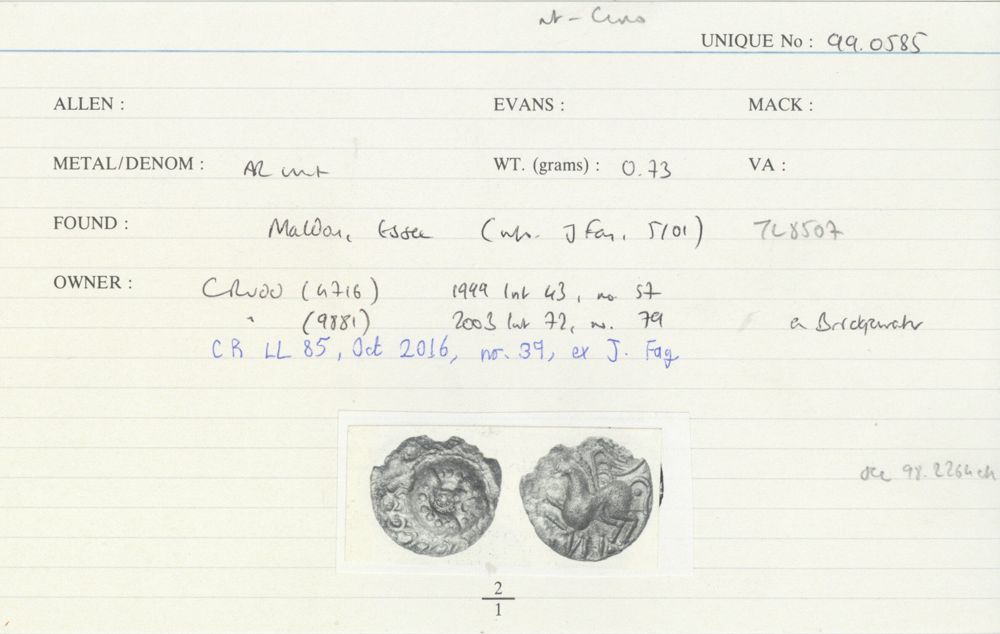 UNIQUE No : 99.0585
ALLEN : EVANS : MACK :
METAL/DENOM : AR unit WT. (grams) : 0.73 VA :
FOUND : Maldon, Essex (info. J Fag, 5/01) TL8507
OWNER : CRUDD (4716) 1999 list 43, no. 57
" (9881) 2003 list 72, no. 79 ex Bridgewater
CR LL 85, Oct 2016, no. 39, ex J. Fag
see 98.2264
2
1